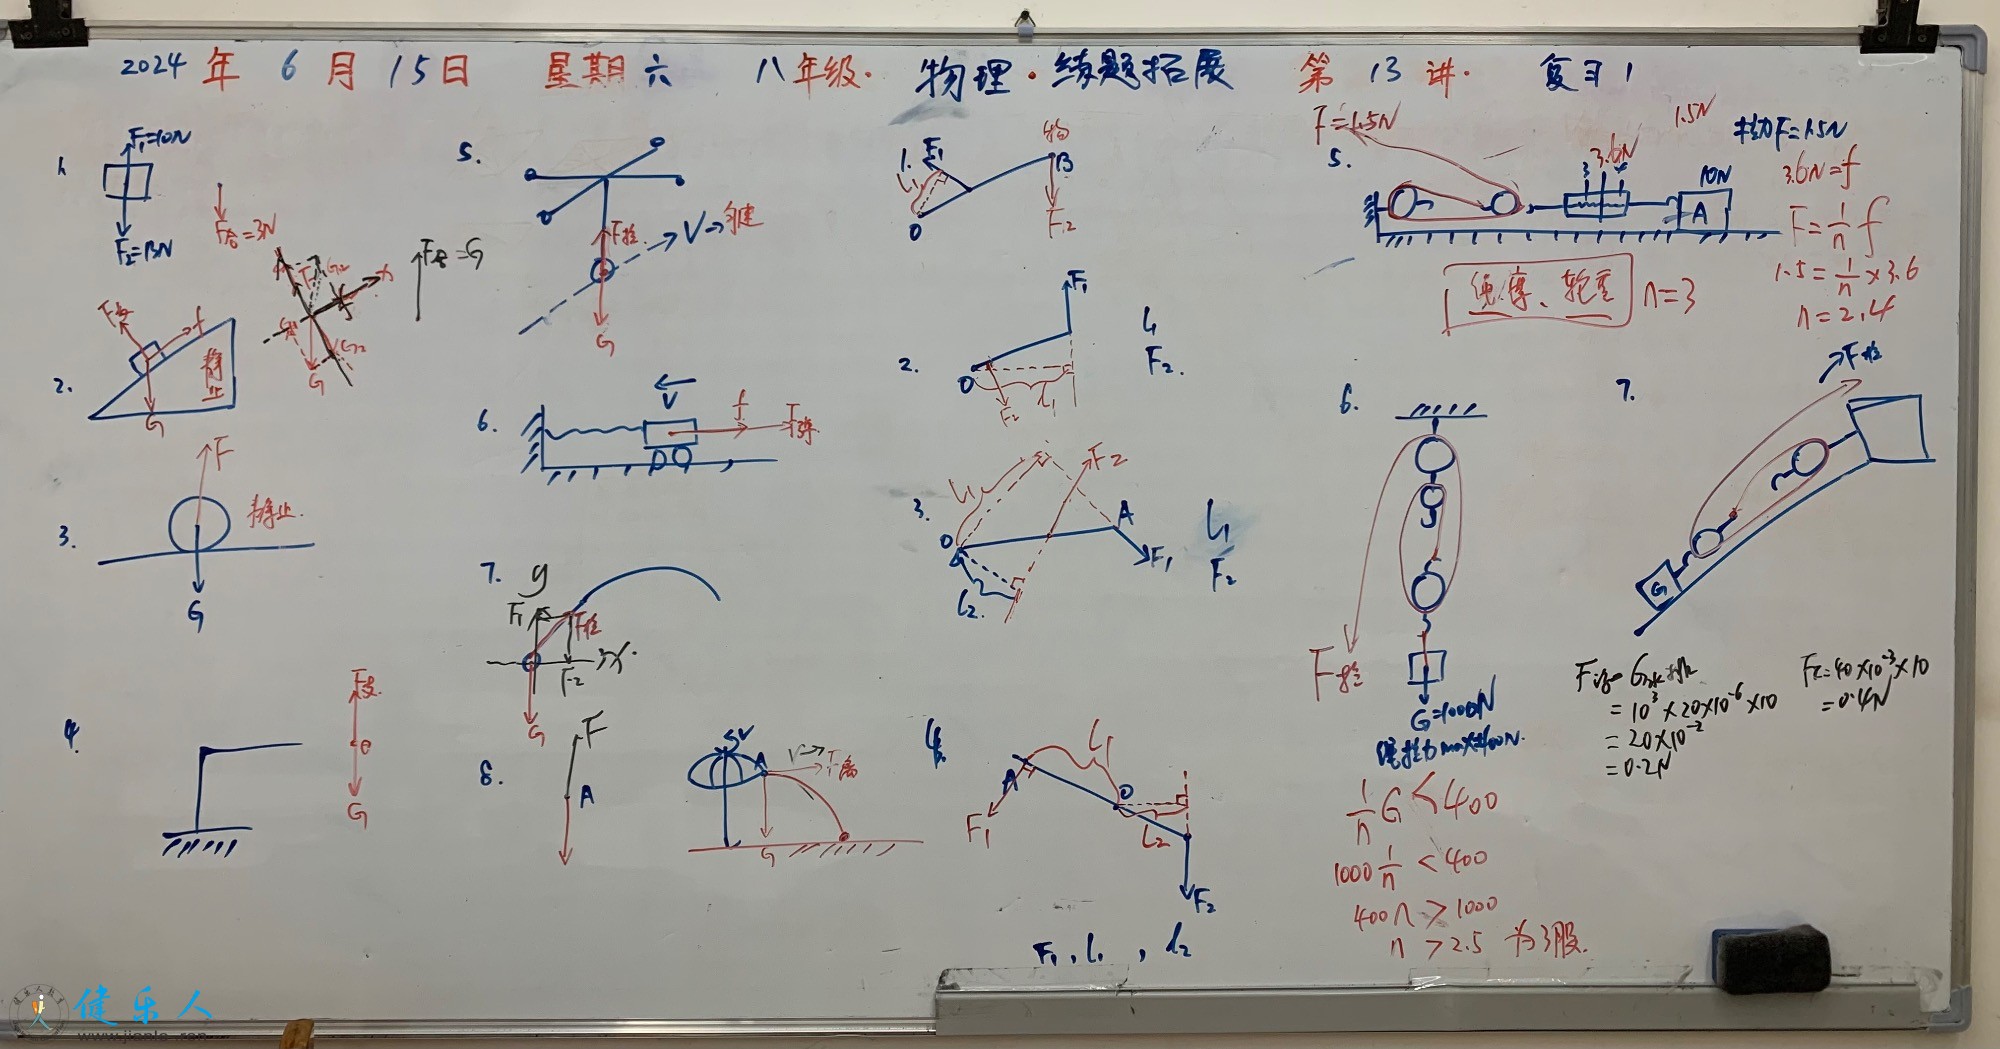 2024 年 6 月 15日 星期六 八年级· 物理·练题拓展 第 13 讲· 复习1
1.
F₁=10N
F₂=13N
F合=3N
2.
F支
f
静止
G
F合=G
G
3.
F
静止.
G
4.
F支
G
5.
F拉
V
G
6.
V
f
F弹
7.
y
F₁
F拉
x
F₂
G
8.
F
A
A
V
G
1.
F₁
L₁
O
B
F₂
2.
F₁
O
L₁
F₂
L₁
F₂.
3.
L₁
F₂
O
A
F₁
L₂
L₁
F₂
4.
A
L₁
O
F₁
L₂
F₂
F₁, L₁, L₂
5.
F=1.5N
3.6N
1.5N
10N
A
拉力F=1.5N
3.6N=f
F=1/n f
1.5=1/n×3.6
n=2.4
绳摩、轮重
n=3
6.
F拉
G=1000N
绳拉力max400N.
1/n G<400
1000 1/n <400
400n>1000
n>2.5 为3股.
7.
F拉
G
F浮=G水排
=10³×20×10⁻⁶×10
=20×10⁻²
=0.2N
=40×10⁻³×10
=0.4N
健乐人